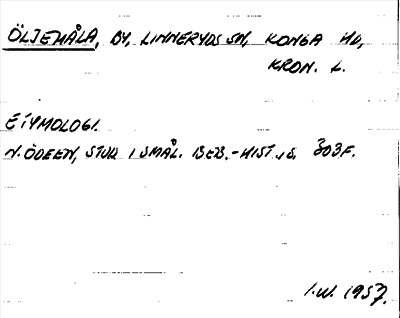 ÖLJEMÅLA, BY, LINNERYDS SN, KONGA HD,
KRON. L.
ETYMOLOGI.
N. ÖDEEN, STUD I SMÅL. BEB.-HIST., S. 303F.
I.W. 1957.